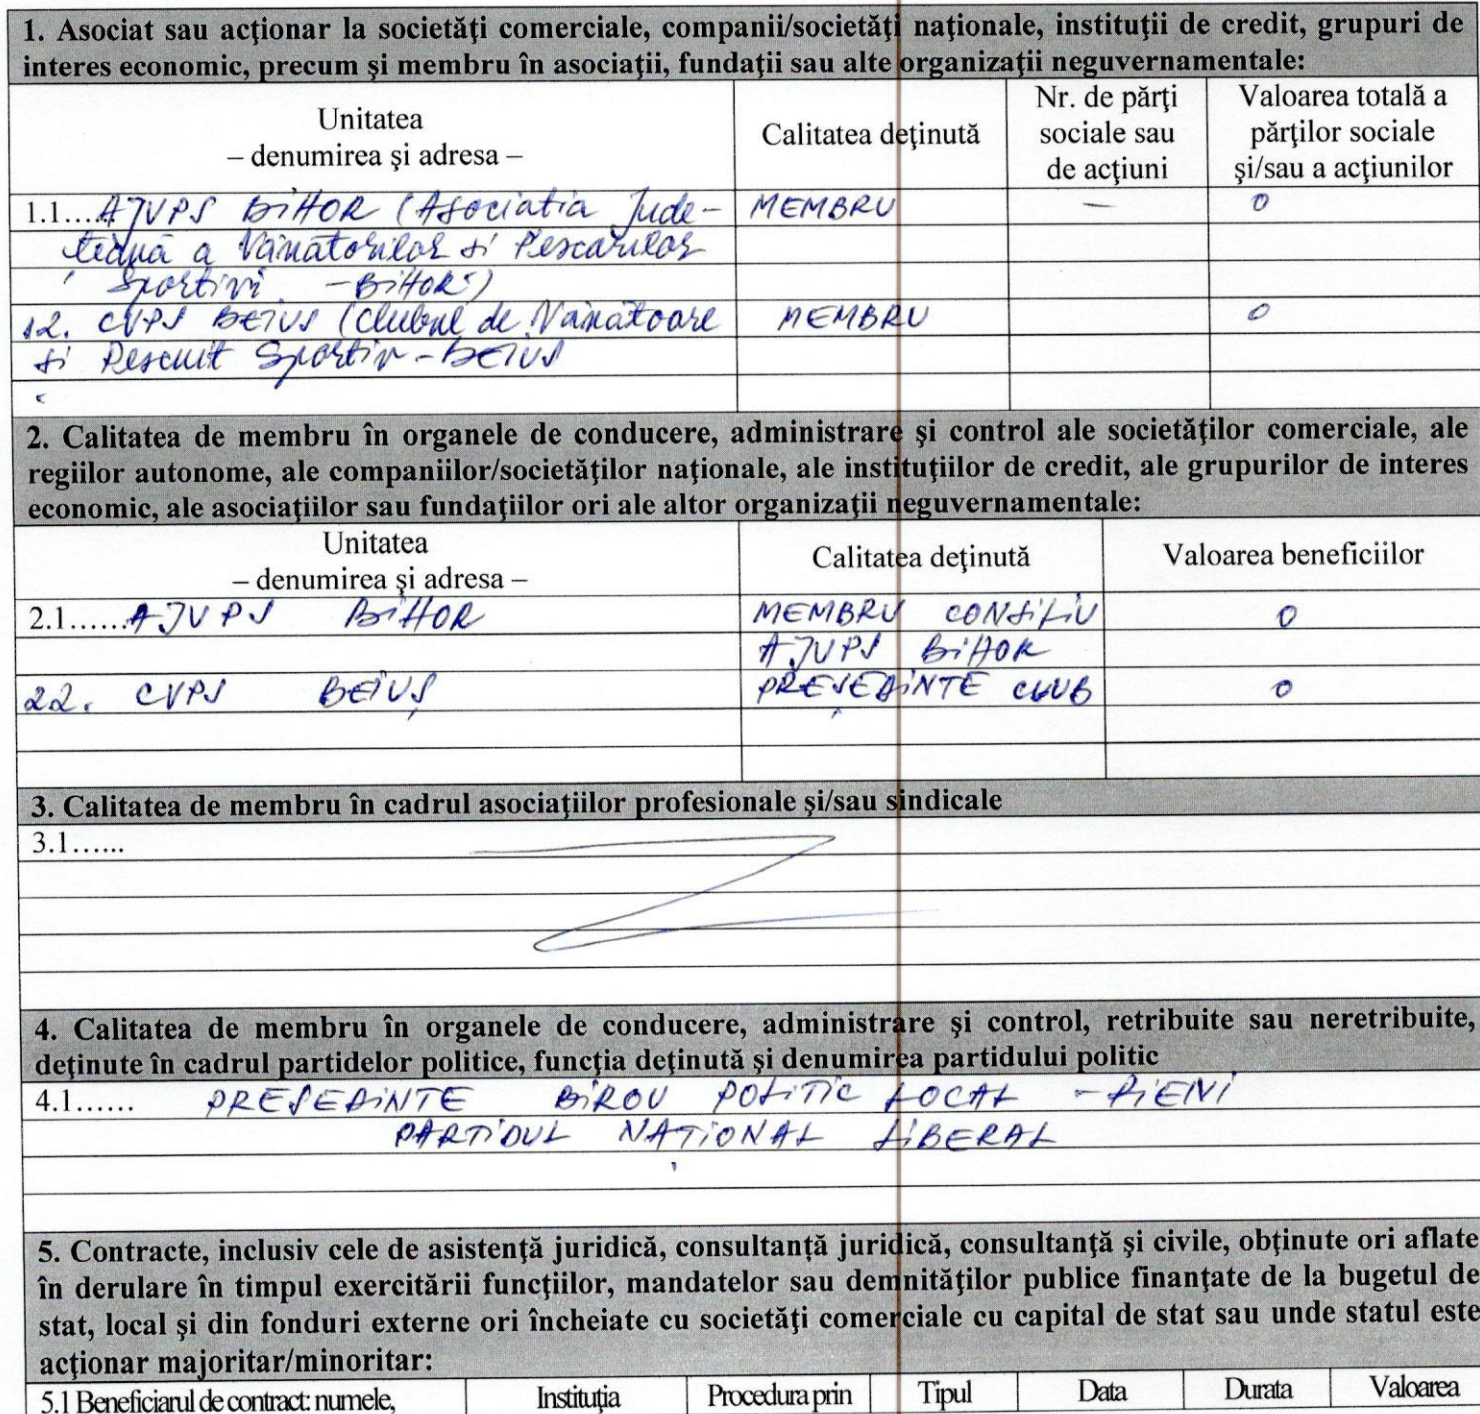 1. Asociat sau acţionar la societăţi comerciale, companii/societăţi naţionale, instituţii de credit, grupuri de
interes economic, precum şi membru în asociaţii, fundaţii sau alte organizaţii neguvernamentale:
Unitatea
– denumirea şi adresa –
Calitatea deţinută
Nr. de părţi
sociale sau
de acţiuni
Valoarea totală a
părţilor sociale
şi/sau a acţiunilor
1.1....AJVPS BIHOR (Asociatia Jude- MEMBRU — 0
ţeană a Vânatorilor si Pescarilor
Sportivi -BIHOR)
1.2. CVPS BEIUS (Clubul de Vânatoare MEMBRU 0
si Pescuit Sportiv - BEIUS
2. Calitatea de membru în organele de conducere, administrare şi control ale societăţilor comerciale, ale
regiilor autonome, ale companiilor/societăţilor naţionale, ale instituţiilor de credit, ale grupurilor de interes
economic, ale asociaţiilor sau fundaţiilor ori ale altor organizaţii neguvernamentale:
Unitatea
– denumirea şi adresa –
Calitatea deţinută
Valoarea beneficiilor
2.1......AJVPS BIHOR MEMBRU CONSILIU 0
AJVPS BIHOR
2.2. CVPS BEIUŞ PREŞEDINTE CLUB 0
3. Calitatea de membru în cadrul asociaţiilor profesionale şi/sau sindicale
3.1......
4. Calitatea de membru în organele de conducere, administrare şi control, retribuite sau neretribuite,
deţinute în cadrul partidelor politice, funcţia deţinută şi denumirea partidului politic
4.1...... PRESEDINTE BIROU POLITIC LOCAL -
PARTIDUL NAŢIONAL LIBERAL
5. Contracte, inclusiv cele de asistenţă juridică, consultanţă juridică, consultanţă şi civile, obţinute ori aflate
în derulare în timpul exercitării funcţiilor, mandatelor sau demnităţilor publice finanţate de la bugetul de
stat, local şi din fonduri externe ori încheiate cu societăţi comerciale cu capital de stat sau unde statul este
acţionar majoritar/minoritar:
5.1 Beneficiarul de contract: numele, Instituţia Procedura prin Tipul Data Durata Valoarea